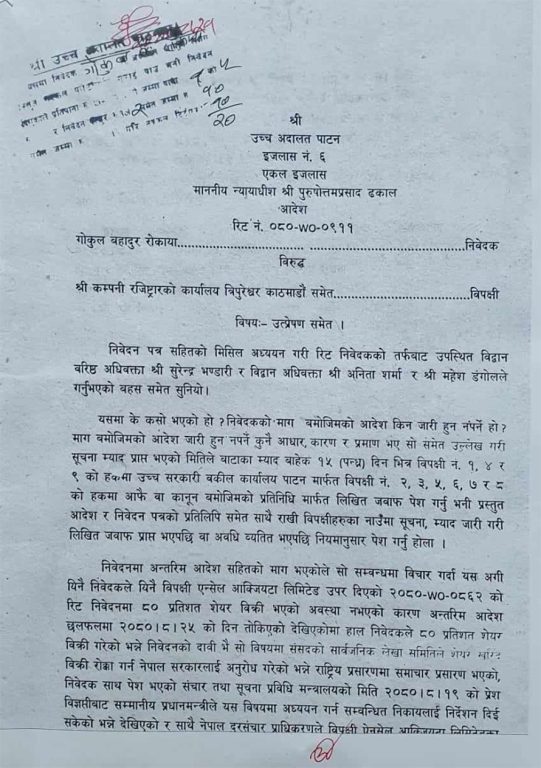 श्री उच्च
श्री
उच्च अदालत पाटन
इजलास नं. ६
एकल इजलास
माननीय न्यायाधीश श्री पुरुषोत्तमप्रसाद ढकाल
आदेश
रिट नं. ०८०-WO-०९११
गोकुल बहादुर रोकाया.............................. ....................................निवेदक
विरुद्ध
श्री कम्पनी रजिष्ट्रारको कार्यालय त्रिपुरेश्वर काठमाडौं समेत..............................विपक्षी
विषयः- उत्प्रेषण समेत ।
निवेदन पत्र सहितको मिसिल अध्ययन गरी रिट निवेदकको तर्फबाट उपस्थित विद्वान
वरिष्ठ अधिवक्ता श्री सुरेन्द्र भण्डारी र विद्वान अधिवक्ता श्री अनिता शर्मा र श्री महेश डंगोलले
गर्नुभएको बहस समेत सुनियो।
यसमा के कसो भएको हो ? निवेदकको माग बमोजिमको आदेश किन जारी हुन नपर्ने हो ?
माग बमोजिमको आदेश जारी हुन नपर्ने कुनै आधार, कारण र प्रमाण भए सो समेत उल्लेख गरी
सूचना म्याद प्राप्त भएको मितिले बाटाका म्याद बाहेक १५ (पन्ध्र) दिन भित्र विपक्षी नं. १, ४ र
९ को हकमा उच्च सरकारी वकील कार्यालय पाटन मार्फत विपक्षी नं. २, ३, ५, ६, ७ र ८
को हकमा आफै वा कानून बमोजिमको प्रतिनिधि मार्फत लिखित जवाफ पेश गर्नु भनी प्रस्तुत
आदेश र निवेदन पत्रको प्रतिलिपि समेत साथै राखी विपक्षीहरुका नाउँमा सूचना, म्याद जारी गरी
लिखित जवाफ प्राप्त भएपछि वा अवधि व्यतित भएपछि नियमानुसार पेश गर्नु होला ।
निवेदनमा अन्तरिम आदेश सहितको माग भएकोले सो सम्वन्धमा विचार गर्दा यस अगी
यिनै निवेदकले यिनै विपक्षी एन्सेल आक्जियटा लिमिटेड उपर दिएको २०८०-WO-०८६२ को
रिट निवेदनमा ८० प्रतिशत शेयर विक्री भएको अवस्था नभएको कारण अन्तरिम आदेश
छलफलमा २०८०।८।२५ को दिन तोकिएको देखिएकोमा हाल निवेदकले ८० प्रतिशत शेयर
विक्री गरेको भन्ने निवेदनको दावी भै सो विषयमा संसदको सार्वजनिक लेखा समितिले शेयर खरिद
विक्री रोक्का गर्न नेपाल सरकारलाई अनुरोध गरेको भन्ने राष्ट्रिय प्रसारणमा समाचार प्रसारण भएको,
निवेदक साथ पेश भएको संचार तथा सूचना प्रविधि मन्त्रालयको मिति २०८०।८।१९ को प्रेश
विज्ञप्तीबाट सम्मानीय प्रधानमन्त्रीले यस विषयमा अध्ययन गर्न सम्वन्धित निकायलाई निर्देशन दिई
सकेको भन्ने देखिएको र साथै नेपाल दूरसंचार प्राधिकरणले विपक्षी ऐनसेल आक्जियटा लिमिटेडका